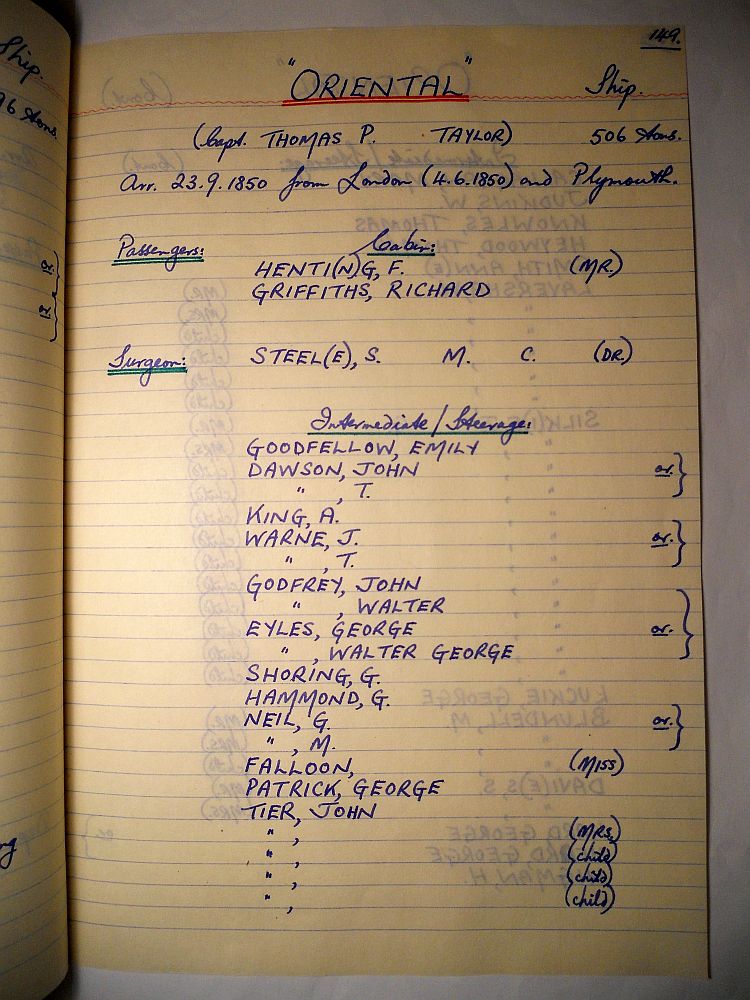 149.
"ORIENTAL" Ship.
(Capt. THOMAS P. TAYLOR) 506 tons.
Arr. 23.9.1850 from London (4.6.1850) and Plymouth.
Passengers: Cabin:
HENTI(N)G, F. (MR.)
GRIFFITHS, RICHARD
Surgeon: STEEL(E), S. M. C. (DR.)
Intermediate/Steerage:
GOODFELLOW, EMILY
DAWSON, JOHN or. }
" , T.
KING, A.
WARNE, J. or. }
" , T.
GODFREY, JOHN
" , WALTER
EYLES, GEORGE or. }
" , WALTER GEORGE
SHORING, G.
HAMMOND, G.
NEIL, G. or. }
" , M.
FALLOON, (MISS)
PATRICK, GEORGE
TIER, JOHN
" , (MRS.)
" , (child)
" , (child)
" , (child)
Ship.
96 tons.
or. }
or. }